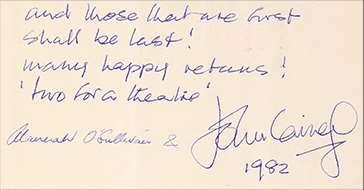 and those that are first
shall be last!
many happy returns!
'two for a theatre'
O'Sullivan &
John
1982